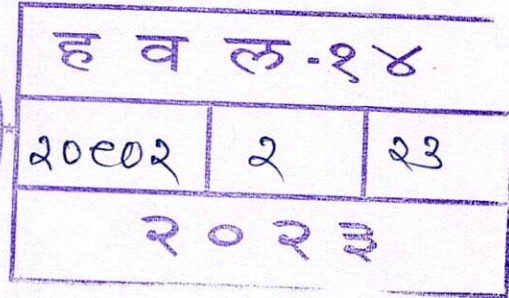 ह व ल - १४
२०९०२ २ २३
२०२३